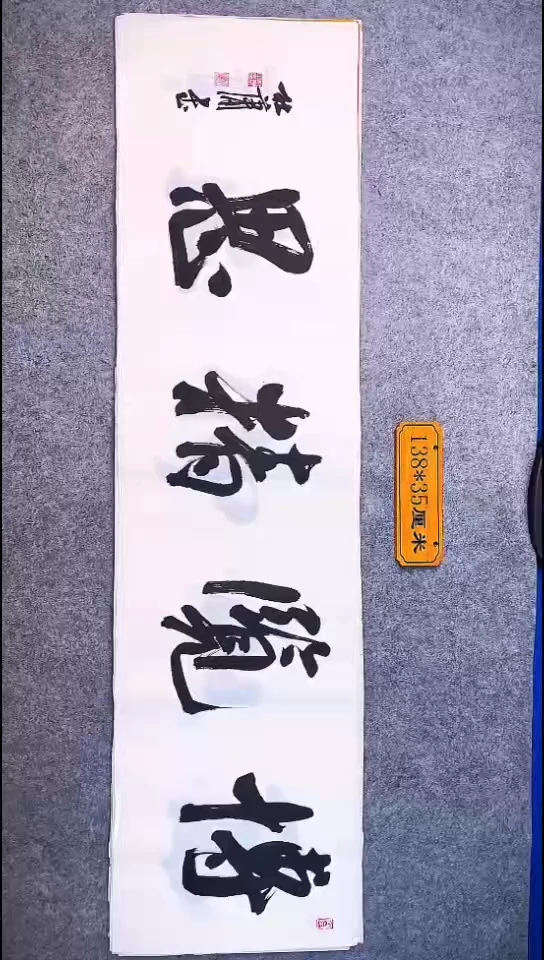 博覽精思
138*35厘米